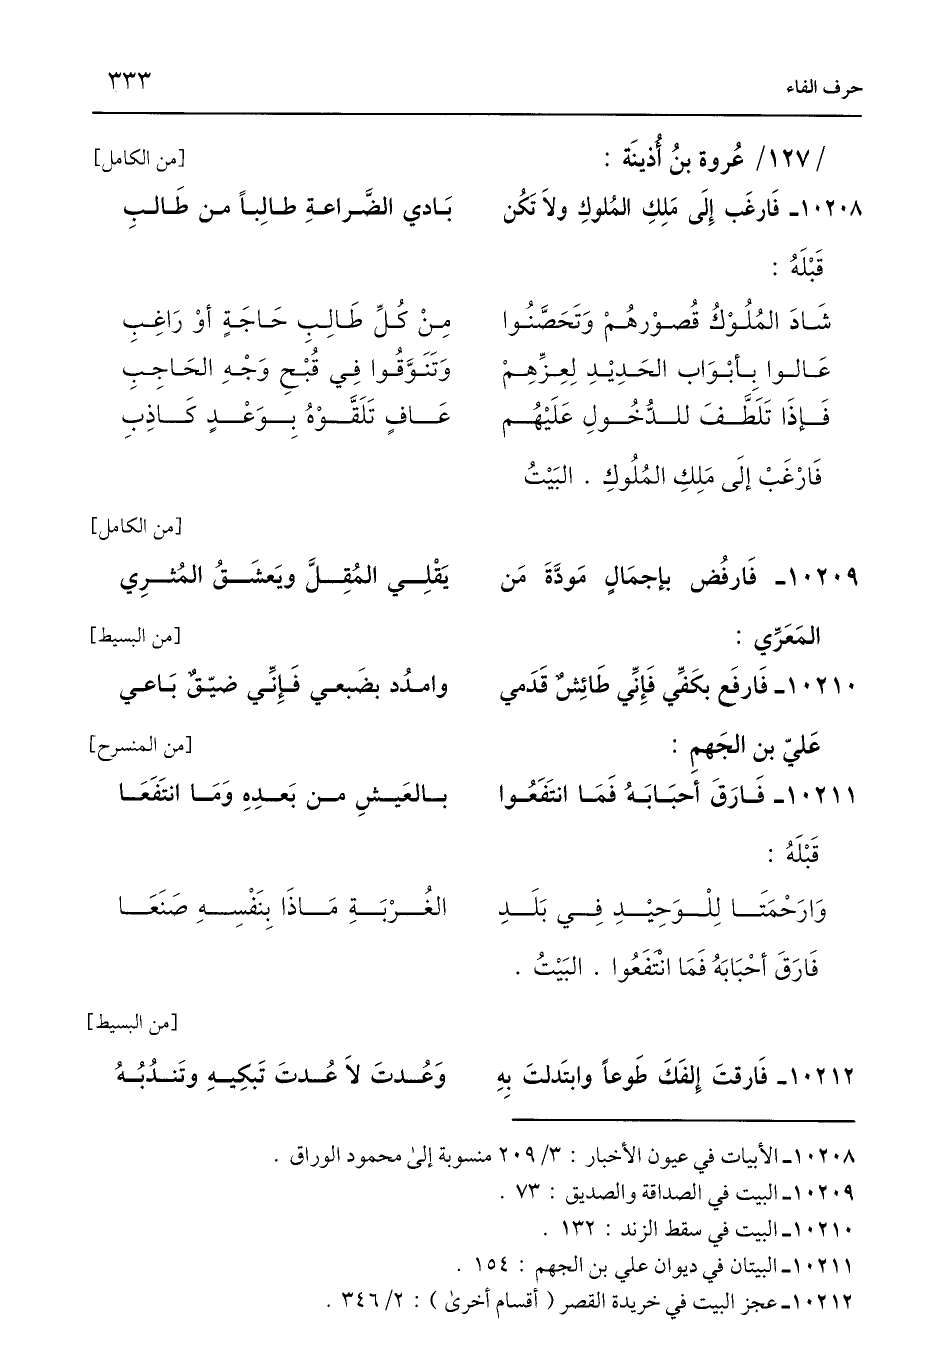 حرف الفاء ٣٣٣
/١٢٧/ عُروة بنُ أُذينَة : [من الكامل]
١٠٢٠٨ـ فَارغَب إِلَى مَلِكِ المُلوكِ ولاَ تَكُن بَادي الضَّراعةِ طالِباً من طَالبِ
قَبْلَهُ :
شَادَ المُلُوْكُ قُصورْهُمْ وَتَحَصَّنُوا مِنْ كُلِّ طَالِبِ حَاجَةٍ أوْ رَاغِبِ
عَالوا بِأبْوَابِ الحَدِيْدِ لِعِزِّهِمْ وَتَنَوَّقُوا فِي قُبْحِ وَجْهِ الحَاجِبِ
فَإذَا تَلَطَّفَ للدُّخُولِ عَلَيْهُم عَافٍ تَلَقَّوْهُ بِوَعْدٍ كَاذِبِ
فَارْغَبْ إلَى مَلِكِ المُلُوكِ . البَيْتُ
[من الكامل]
١٠٢٠٩ـ فَارفُض بإجمَالٍ مَودَّةَ مَن يَقْلِي المُقِلَّ ويَعشَقُ المُثري
المَعَرِّي : [من البسيط]
١٠٢١٠ـ فَارفَع بكَفِّي فَإنِّي طَائِشٌ قَدَمي وامدُد بضَبعي فَإنِّي ضيّقٌ بَاعي
عَليّ بن الجَهمِ : [من المنسرح]
١٠٢١١ـ فَارَقَ أحبَابَهُ فَمَا انتَفَعُوا بالعَيشِ من بَعدِهِ وَمَا انتَفَعَا
قَبْلَهُ :
وَارَحْمَتَا لِلْوَحِيْدِ فِي بَلَدِ الغُرْبَةِ مَاذَا بِنَفْسِهِ صَنَعَا
فَارَقَ أحْبَابَهُ فَمَا انْتَفَعُوا . البَيْتُ .
[من البسيط]
١٠٢١٢ـ فَارقتَ إلفَكَ طَوعاً وابتَدلتَ بِهِ وَعُدتَ لاَ عُدتَ تَبكِيهِ وتَندُبُهُ
١٠٢٠٨ـ الأبيات في عيون الأخبار : ٣/ ٢٠٩ منسوبة إلىٰ محمود الوراق .
١٠٢٠٩ـ البيت في الصداقة والصديق : ٧٣ .
١٠٢١٠ـ البيت في سقط الزند : ١٣٢ .
١٠٢١١ـ البيتان في ديوان علي بن الجهم : ١٥٤ .
١٠٢١٢ـ عجز البيت في خريدة القصر ( أقسام أخرىٰ ) : ٢/ ٣٤٦ .